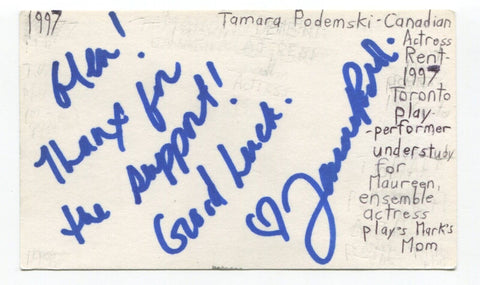 1997
Tamara Podemski-Canadian
Actress
Rent-
1997
Toronto
play-
-performer
understudy
for
Maureen,
ensemble
actress
play's Mark's
Mom
Glen!
Thanx for
the support!
Good Luck.
♡ Tamara Pod.